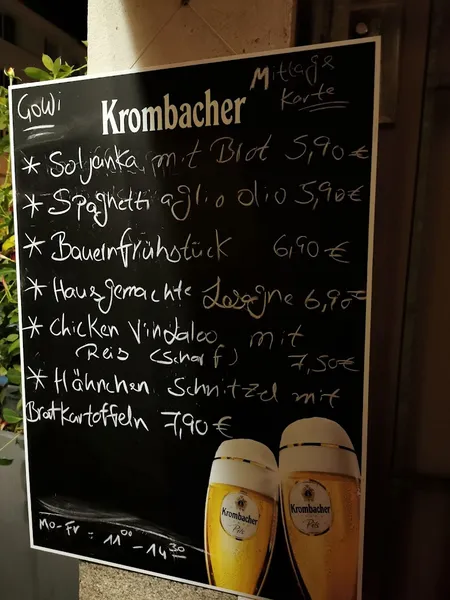 Gowi
Krombacher
Mittags
Karte
* Soljanka mit Brot 5,90€
* Spaghetti aglio olio 5,90€
* Bauernfrühstück 6,90€
* Hausgemachte Lasagne 6,90€
* Chicken Vindaloo mit
Reis (scharf) 7,50€
* Hähnchen Schnitzel mit
Bratkartoffeln 7,90€
Krombacher
Pils
Krombacher
Pils
Mo-Fr = 11°° - 14 30